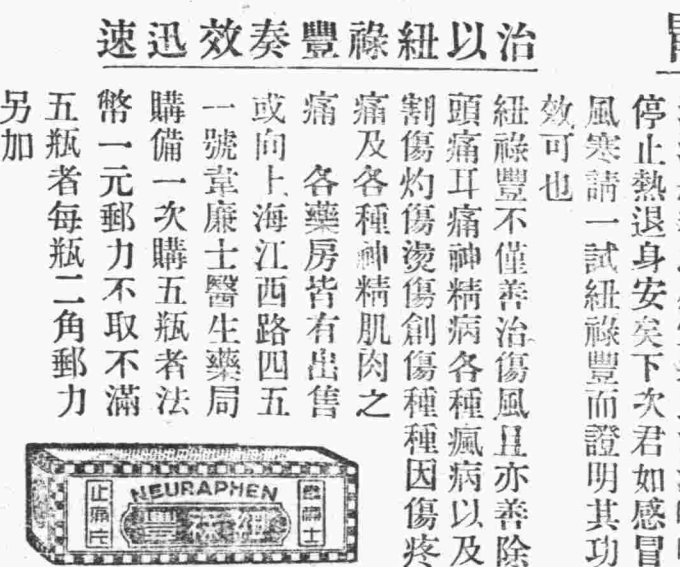 治以紐祿豐奏效迅速
停止熱退身安矣下次君如感冒
風寒請一試紐祿豐而證明其功
效可也
紐祿豐不僅善治傷風且亦善除
頭痛耳痛神精病各種瘋病以及
割傷灼傷燙傷創傷種種因傷疼
痛及各種神精肌肉之
痛 各藥房皆有出售
或向上海江西路四五
一號韋廉士醫生藥局
購備一次購五瓶者法
幣一元郵力不取不滿
五瓶者每瓶二角郵力
另加
NEURAPHEN
紐祿豐
止痛片